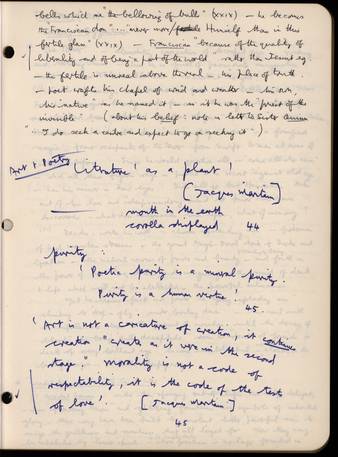 bells which are "the bellowing of bulls" (XXIX) — he becomes
the Franciscan don "... never more Himself than in this
fertile glass" (XXIX) — Franciscan because of the quality of
liberality and of being a part of the world rather than
— the fertile is unreal above the real — his place of truth.
— poet crafts his chapel of wind and weather — his own,
this 'native' as he named it — as it were the 'priest of the
invisible' (about his belief: note in letter to Sister
"I do seek a centre and expect to go on seeking it".)
Art & Poetry
Literature 'as a plant'!
[Jacques Maritain]
mouth in the earth
corolla displayed 44
purity:
'Poetic purity is a moral purity.
Purity is a human virtue'.
45.
'Art is not a caricature of creation, it continues
creation, "creates as it were in the second
stage." morality is not a code of
respectability, it is the code of the tests
of love'. [Jacques Maritain]
45